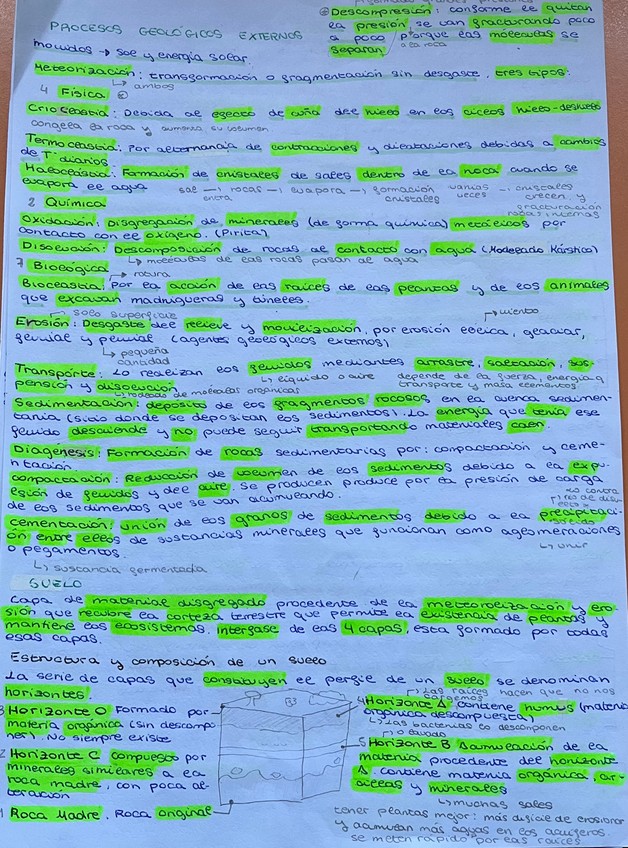 PROCESOS GEOLÓGICOS EXTERNOS
movidos → sol y energía solar.
Descompresión: conforme le quitan
la presión se van fracturando poco
a poco porque las moléculas se
separan
a la roca
Meteorización: transformación o fragmentación sin desgaste. tres tipos:
↳ ambos
4 Física
Crioclastia: Debida al efecto de cuña del hielo en los ciclos hielo-deshielo
congela la roca y aumenta su volumen
Termoclastia: Por alternancia de contracciones y dilataciones debidas a cambios
de Tª diarios
Haloclastia: Formación de cristales de sales dentro de la roca cuando se
evapora el agua
sal → rocas → evapora → formación varias → cristales
entra cristales veces crecen y
fracturación
rocas internas
2 Química
Oxidación: Disgregación de minerales (de forma química) metálicos por
contacto con el oxígeno. (Pirita)
Disolución: Descomposición de rocas al contacto con agua (Modelado Kárstico)
↳ moléculas de las rocas pasan al agua
Biológica
→ rotura
Bioclastia: Por la acción de las raíces de las plantas y de los animales
que excavan madrigueras y túneles.
solo superficie
→ viento
Erosión: Desgaste del relieve y movilización, por erosión eólica, glaciar,
fluvial y pluvial (agentes geológicos externos)
↳ pequeña
cantidad
Transporte: Lo realizan los fluidos mediantes arrastre, saltación, sus-
pensión y disolución
↳ líquido o aire depende de la fuerza, energía q
transporte y masa elementos
↳ rodeado de moléculas orgánicas
Sedimentación: depósito de los fragmentos rocosos en la cuenca sedimen-
taria (sitio donde se depositan los sedimentos). La energía que tenía ese
fluido desciende y no puede seguir transportando materiales caen.
Diagénesis: Formación de rocas sedimentarias por: compactación y ceme-
ntación.
compactación: Reducción de volumen de los sedimentos debido a la expu-
lsión de fluidos y del aire. Se producen produce por la presión de carga
de los sedimentos que se van acumulando.
lo contra
cementación: unión de los granos de sedimentos debido a la precipitaci-
ón entre ellos de sustancias minerales que funcionan como aglomeraciones
o pegamentos.
↳ unir
↳ sustancia fermentada
SUELO
capa de material disgregado procedente de la meteorolización y ero-
sión que recubre la corteza terrestre que permite la existencia de plantas y
mantiene los ecosistemas. interfase de las 4 capas, está formado por todas
esas capas.
Estructura y composición de un suelo
La serie de capas que constituyen el perfil de un suelo se denominan
horizontes.
↳ las raíces hacen que no nos
carguemos
3 Horizonte O Formado por
materia orgánica (sin descompo
ner). No siempre existe
4 Horizonte A: contiene humus (materia
orgánica descompuesta)
↳ Las bacterias lo descomponen
→ o lavado
2 Horizonte C compuesto por
minerales similares a la
roca madre, con poca al-
teración
5 Horizonte B Acumulación de la
materia procedente del horizonte
A. contiene materia orgánica, ar-
cillas y minerales
↳ muchas sales
1 Roca Madre. Roca original
tener plantas mejor: más difícil de erosionar
y acumulan más aguas en los acuíferos.
se meten rápido por las raíces